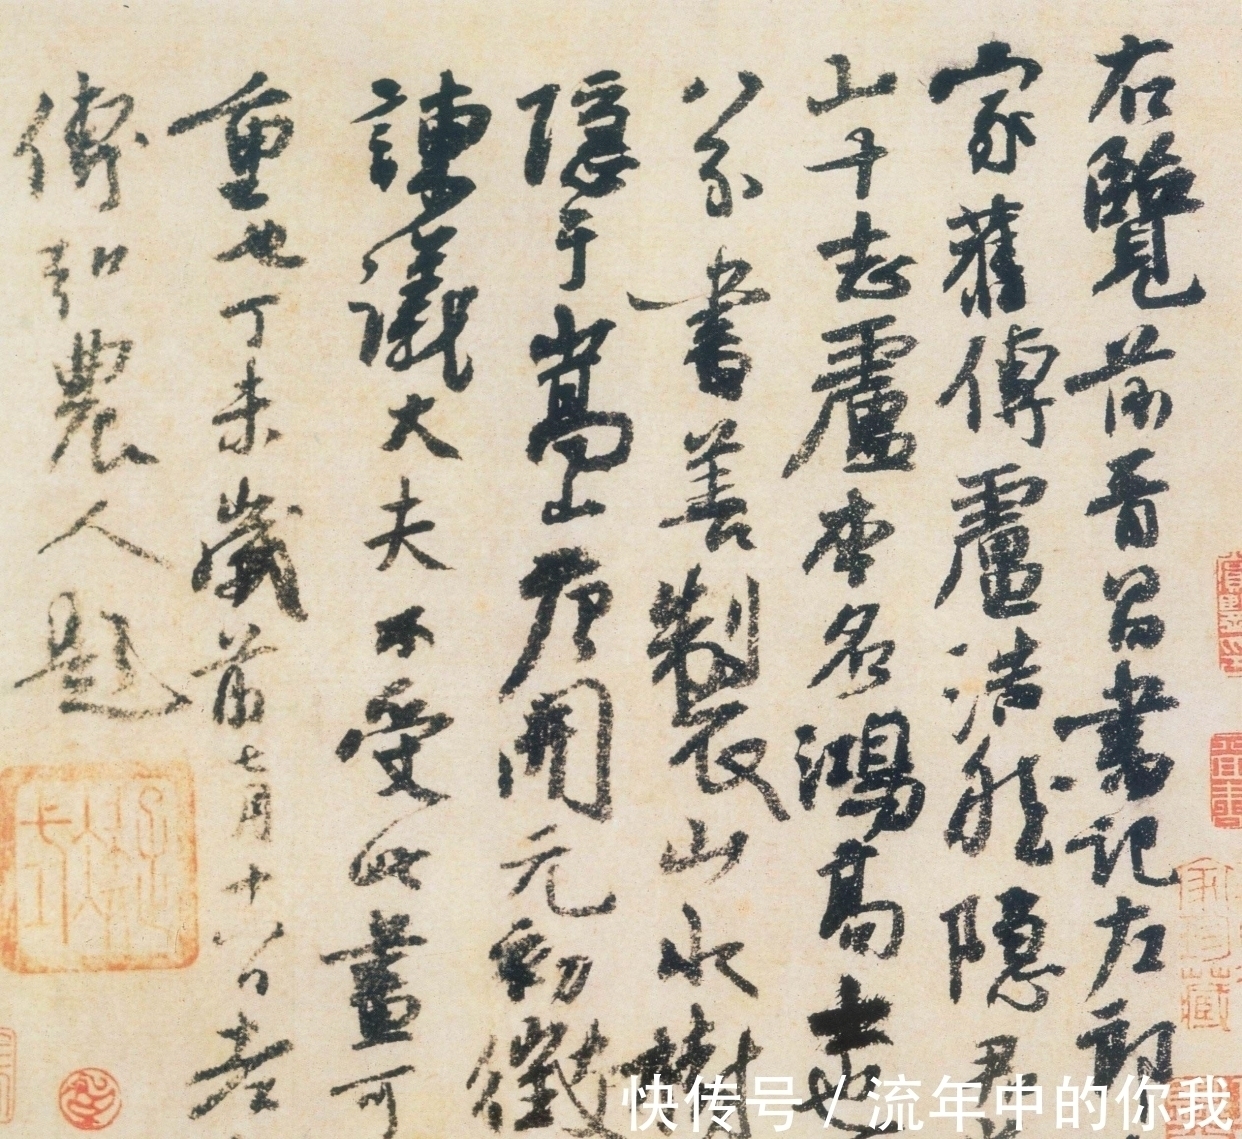 右覽前晉昌書記左郎
家舊傳盧浩然隱君
山十志盧本名鴻高士也
八分書善製山水樹
隱于嵩山唐開元初徵
諫議大夫不受此畫可
重也丁未歲前七月十八日老
傅弘農人題
快传号/流年中的你我